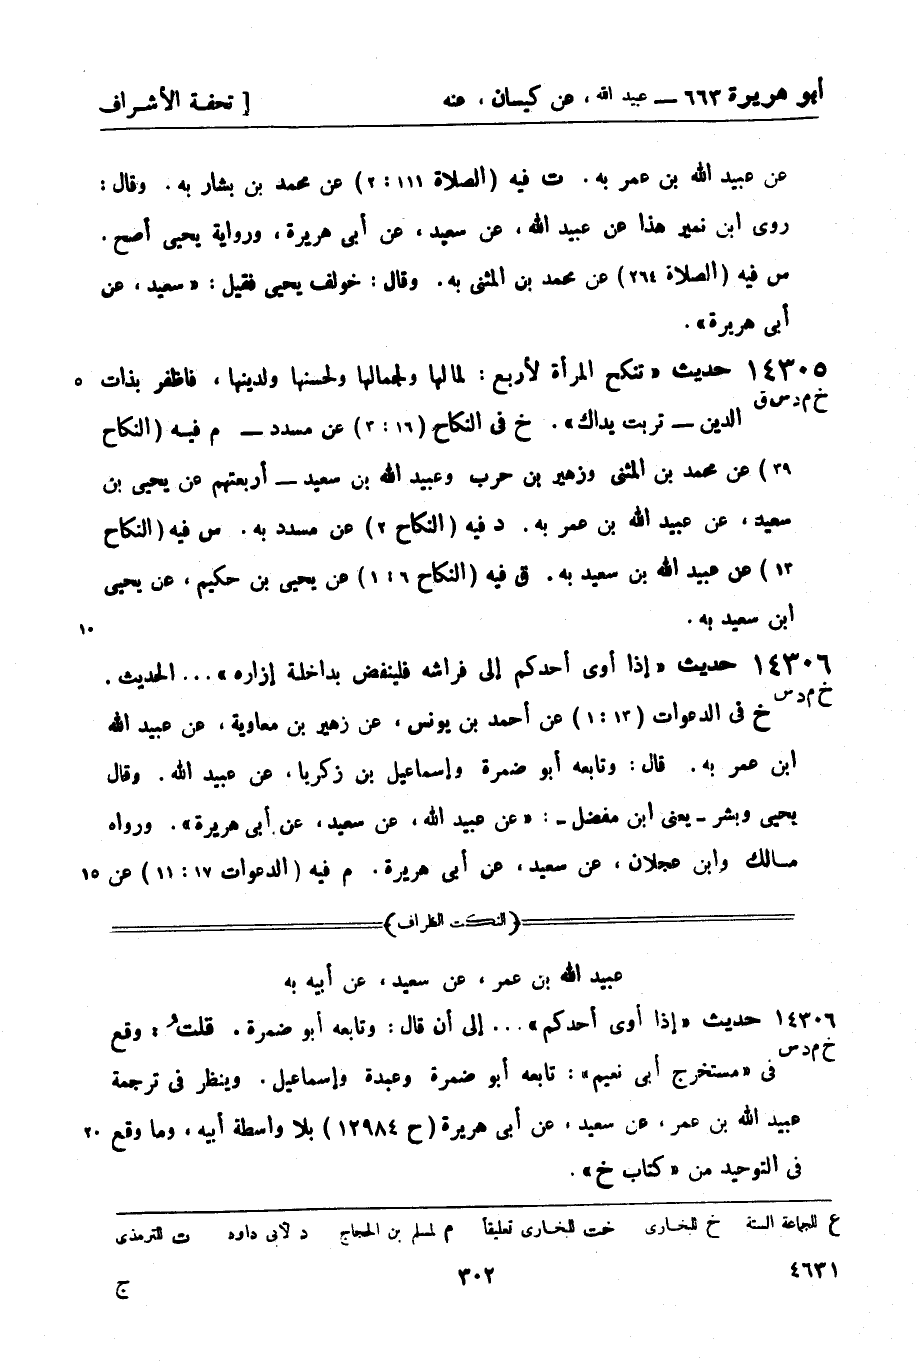 أبو هريرة ٦٦٣ ــ عبيد الله ، عن كيسان ، عنه [ تحفة الأشراف
عن عبيد الله بن عمر به . ت فيه (الصلاة ١١١ : ٢) عن محمد بن بشار به . وقال :
روى ابن نمير هذا عن عبيد الله ، عن سعيد ، عن أبى هريرة ، ورواية يحيى أصح .
س فيه (الصلاة ٢٦٤) عن محمد بن المثنى به . وقال : خولف يحيى فقيل : « سعيد ، عن
أبى هريرة» .
١٤٣٠٥ حديث « تنكح المرأة لأربع : لمالها ولجمالها ولحسنها ولدينها ، فاظفر بذات ٥
خ م د س ق الدين ــ تربت يداك» . خ فى النكاح (١٦ : ٢) عن مسدد ــ م فيه (النكاح
٣٩) عن محمد بن المثنى وزهير بن حرب وعبيد الله بن سعيد ــ أربعتهم عن يحيى بن
سعيد ، عن عبيد الله بن عمر به . د فيه (النكاح ٢) عن مسدد به . س فيه (النكاح
١٣) عن عبيد الله بن سعيد به . ق فيه (النكاح ٦ : ١) عن يحيى بن حكيم ، عن يحيى
ابن سعيد به . ١٠
١٤٣٠٦ حديث « إذا أوى أحدكم إلى فراشه فلينفض بداخلة إزاره» . . . الحديث .
خ م د س خ فى الدعوات (١٣ : ١) عن أحمد بن يونس ، عن زهير بن معاوية ، عن عبيد الله
ابن عمر به . قال : وتابعه أبو ضمرة وإسماعيل بن زكريا ، عن عبيد الله . وقال
يحيى وبشر ـ يعنى ابن مفضل ـ : «عن عبيد الله ، عن سعيد ، عن أبى هريرة» . ورواه
مالك وابن عجلان ، عن سعيد ، عن أبى هريرة . م فيه (الدعوات ١٧ : ١١) عن ١٥
(النكت الظراف)
عبيد الله بن عمر ، عن سعيد ، عن أبيه به
١٤٣٠٦ حديث «إذا أوى أحدكم» . . . إلى أن قال : وتابعه أبو ضمرة . قلتُ : وقع
خ م د س فى «مستخرج أبى نعيم» : تابعه أبو ضمرة وعبدة وإسماعيل . وينظر فى ترجمة
عبيد الله بن عمر ، عن سعيد ، عن أبى هريرة (ح ١٢٩٨٤) بلا واسطة أبيه ، وما وقع ٢٠
فى التوحيد من « كتاب خ» .
ع للجماعة الستة خ للبخارى خت للبخارى تعليقاً م لمسلم بن الحجاج د لأبى داود ت للترمذى
٤٦٣١ ٣٠٢ ج